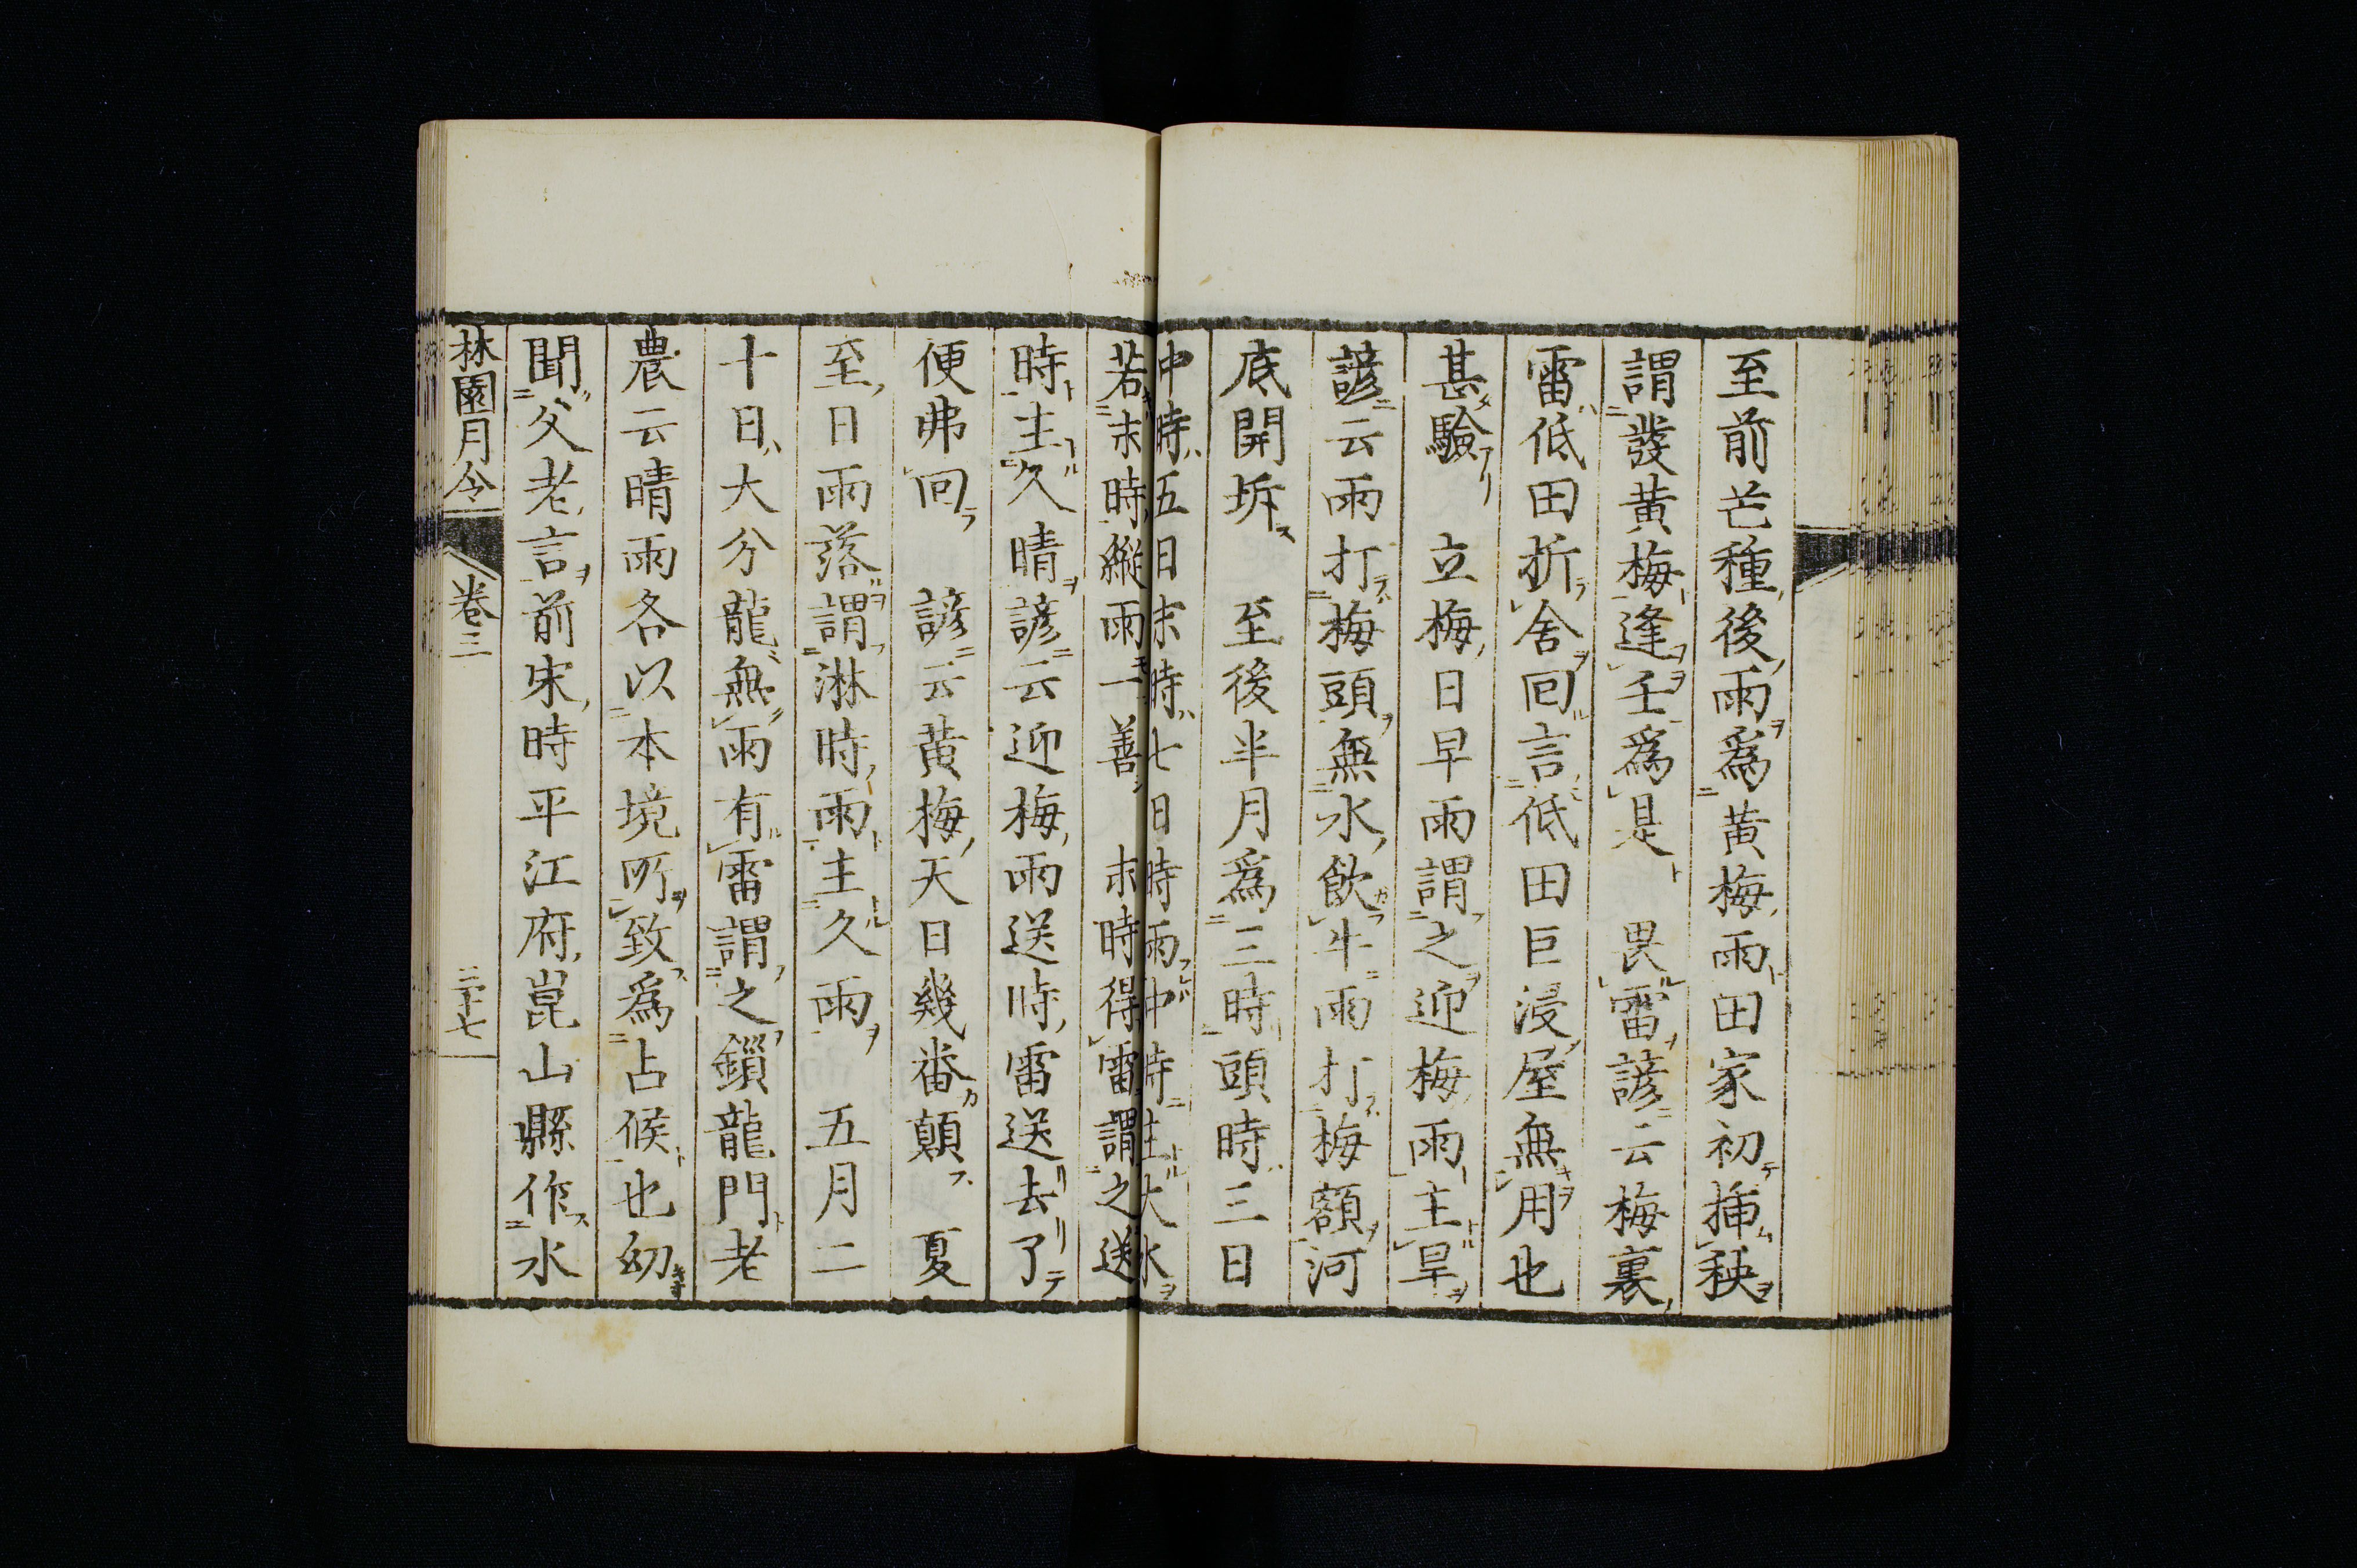 至前芒種後雨為黃梅雨田家初插秧
謂發黃梅逢壬為是　畏雷諺云梅裏
雷低田折舍回言低田巨浸屋無用也
甚驗　立梅日早雨謂之迎梅雨主旱
諺云雨打梅頭無水飲牛雨打梅額河
底開坼　至後半月為三時頭時三日
中時五日末時七日時雨中時主大水
若末時縱雨一善　末時得雷謂之送
時主久晴諺云迎梅雨送時雷送去了
便弗回　諺云黃梅天日幾番顛　夏
至日雨落謂淋時雨主久雨　五月二
十日大分龍無雨有雷謂之鎖龍門老
農云晴雨各以本境所致為占候也幼
聞父老言前宋時平江府崑山縣作水
林園月令　卷三　二十七